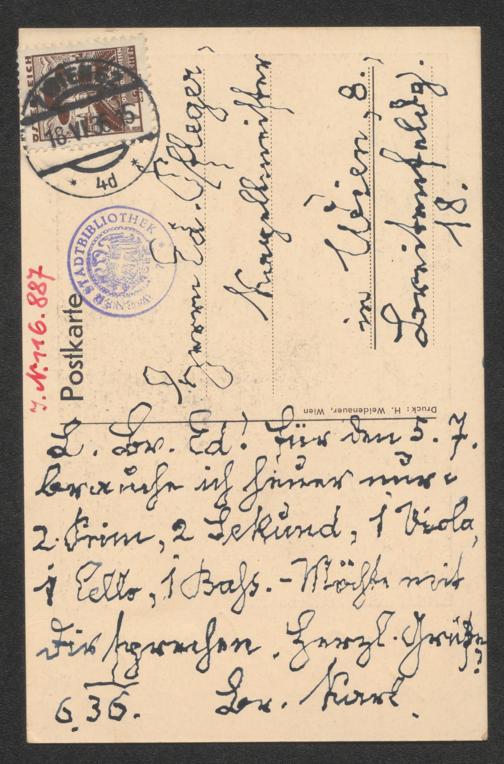 ÖSTERREICH
WIEN 62
18.VI.36
4d
WIENER STADTBIBLIOTHEK
J.N. 116.887
Postkarte
Herrn Ed. Pfleger,
Kapellmeister
in Wien, 8.
Breitenfeldg.
18.
Druck: H. Weidenauer, Wien
L. Br. Ed! Für den 5. 7.
brauche ich heuer nur:
2 Prim, 2 Sekund, 1 Viola,
1 Cello, 1 Baß. – Möchte mit
Dir sprechen. Herzl. Grüße
6.36. Br. Karl.